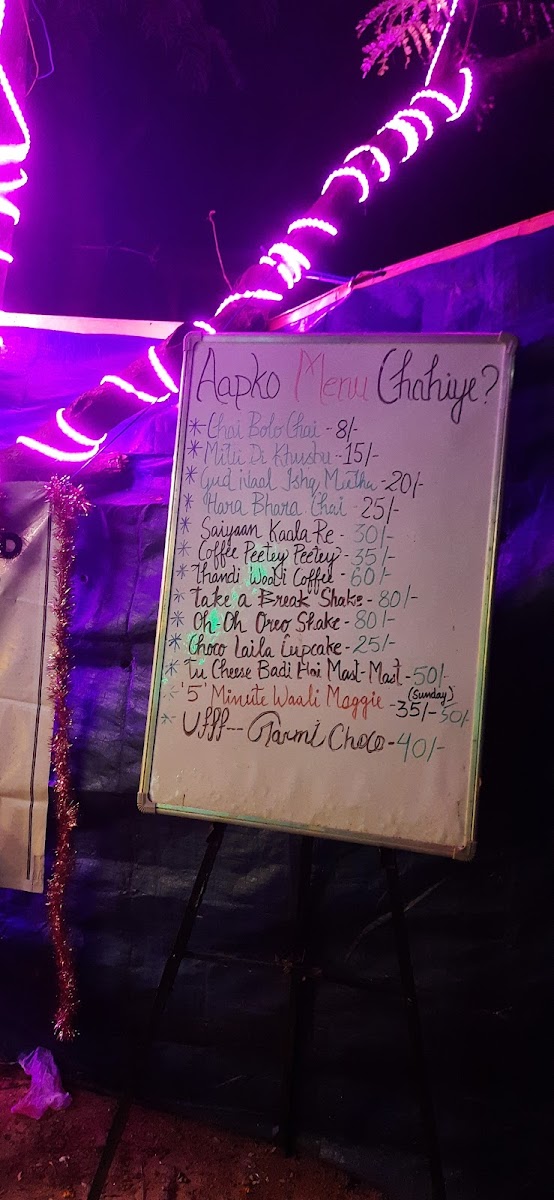 Aapko Menu Chahiye?
* Chai Bolo Chai - 8/-
* Mitti Di Khushu - 15/-
* Gud Naal Ishq Mietha - 20/-
* Hara Bhara Chai - 25/-
* Saiyaan Kaala Re - 30/-
* Coffee Peetey Peetey - 35/-
* Thandi Waali Coffee - 60/-
* Take a Break Shake - 80/-
* Oh Oh Oreo Shake - 80/-
* Choco Laila Cupcake - 25/-
* Tu Cheese Badi Hai Mast-Mast - 50/-
* '5' Minute Waali Maggie - 35/- (Sunday) 50/-
* Ufff--- Garmi Choco - 40/-